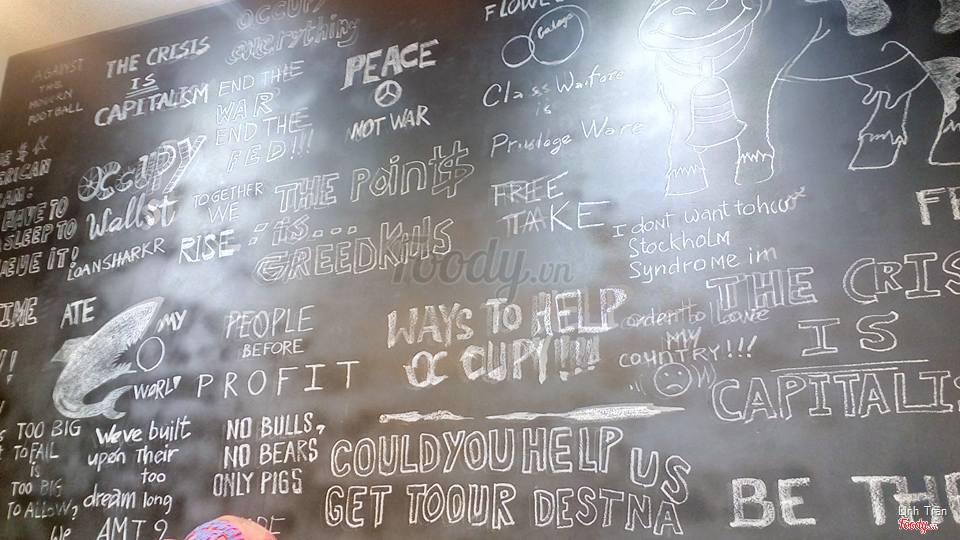 AGAINST
THE
MODERN
FOOTBALL
THE CRISIS
IS
CAPITALISM
OCCUPY
everything
END THE
WAR
END THE
FED!!!
PEACE
NOT WAR
FLOWE
Class Warfare
is
FREE
TAKE
RICAN
HAVE TO
ASLEEP TO
IEVE IT!
OCCUPY
Wallst
TOGETHER
WE
RISE
LOANSHARKR
THE Point$
:is...
GREEDKills
I dont want to
Stockholm
Syndrome im
order to love
MY
COUNTRY!!!
THE CRIS
IS
CAPITALIS
IME
ATE
MY
WORLD
PEOPLE
BEFORE
PROFIT
WAYS TO HELP
OCCUPY!!!
TOO BIG
TO FAIL
IS
TOO BIG
TO ALLOW,
We
We've built
upon Their
too
dream long
AMT 9
NO BULLS,
NO BEARS
ONLY PIGS
COULD YOU HELP US
GET TO OUR DESTNA
BE THE
foody.vn
Linh Tran
Foody.vn